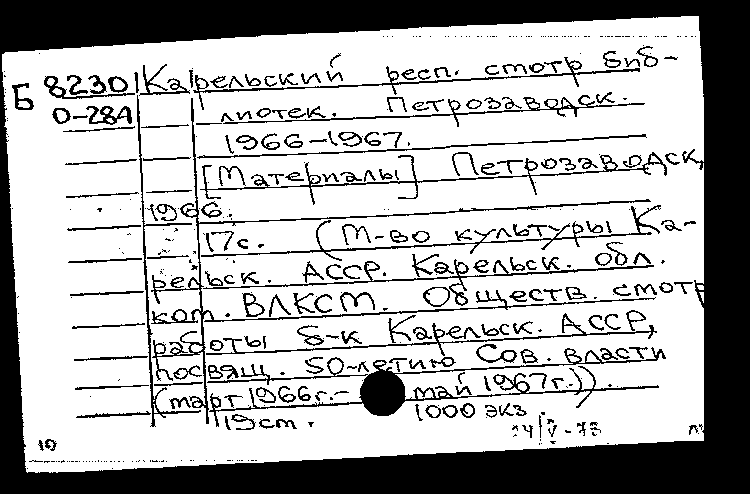 Б 8230 Карельский респ. смотр биб-
О-284 лиотек. Петрозаводск.
1966-1967.
[Материалы] Петрозаводск,
1966.
17с. (М-во культуры Ка-
рельск. АССР. Карельск. обл.
ком. ВЛКСМ. Обществ. смотр
работы б-к Карельск. АССР,
посвящ. 50-летию Сов. власти
(март 1966г.- май 1967г.)).
19ст. 1000 экз.
10